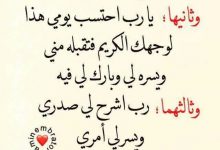 وثانيها؛ يا رب احتسب يومي هذا
لوجهك الكريم فتقبله مني
ويسره لي وبارك لي فيه
وثالثهما؛ رب اشرح لي صدري
ويسر لي أمري